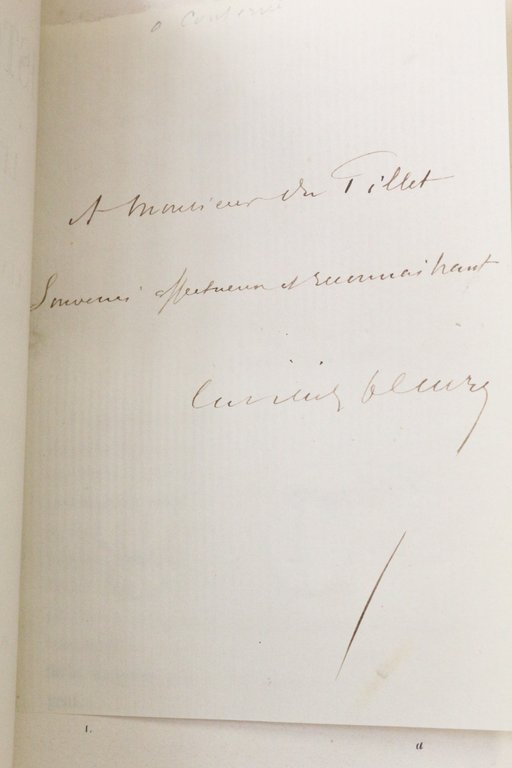 A Monsieur Du Tillet
Souvenir affectueux et reconnaissant
Cuvillier Fleury
1.
a